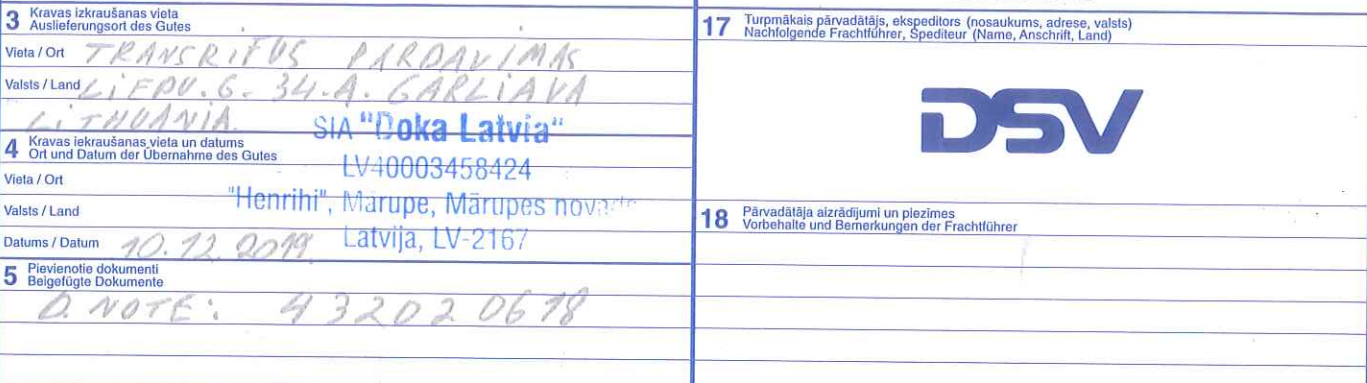 3 Kravas izkraušanas vieta
Auslieferungsort des Gutes
Vieta / Ort TRANSRIFUS PARDAVIMAS
Valsts / Land LIEPU. G. 34.A. GARLIAVA
LITHUANIA.
SIA "Doka Latvia"
4 Kravas iekraušanas vieta un datums
Ort und Datum der Übernahme des Gutes
LV40003458424
Vieta / Ort
"Henrihi", Mārupe, Mārupes
Valsts / Land
Datums / Datum 10.12.2019. Latvija, LV-2167
5 Pievienotie dokumenti
Beigefügte Dokumente
D. NOTE: 432020618
17 Turpmākais pārvadātājs, ekspeditors (nosaukums, adrese, valsts)
Nachfolgende Frachtführer, Spediteur (Name, Anschrift, Land)
DSV
18 Pārvadātāja aizrādījumi un piezīmes
Vorbehalte und Bemerkungen der Frachtführer